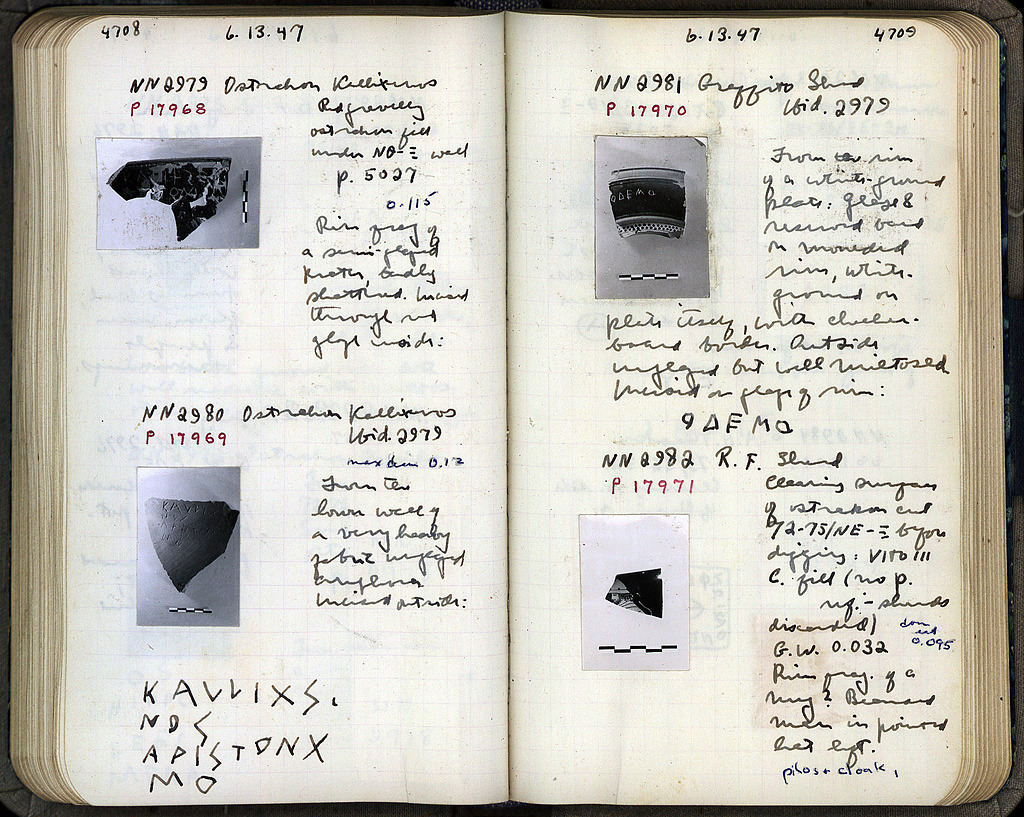 4708
6.13.47
NN2979 Ostrakon Kallixenos
P 17968
Red gravelly
ostrakon fill
under NO-Ξ wall
p. 5027
0.115
Rim frag of
a semi-glazed
krater, badly
shattered. Incised
through red
glaze inside:
NN2980 Ostrakon Kallixenos
P 17969
Ibid. 2979
max dim 0.12
From the
lower wall of
a very heavy
fabric unglazed
amphora
Incised outside:
KAVVIXS,
NOS
APISTONX
MO
6.13.47
4709
NN2981 Graffito Sherd
P 17970
Ibid. 2979
From rim
of a white-ground
plate: glazed
reserved band
on moulded
rim, white-
ground on
plate itself, with checker-
board border. Outside
unglazed but well miltosed
Incised on glaze of rim:
ϘΔEMO
NN2982 R.F. Sherd
P 17971
Cleaning surface
of ostrakon cut
72-75/NE-Ξ before
digging: VI TO III
C. fill (no p.
ref. - sherds
discarded)
diam
est
0.095
G.W. 0.032
Rim frag. of a
mug? Bearded
man in pointed
hat left.
pilos + cloak,